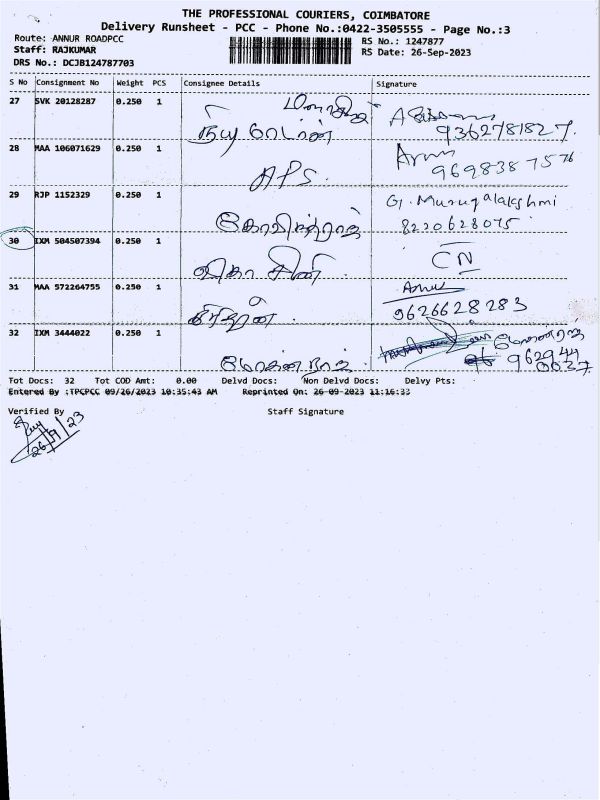 THE PROFESSIONAL COURIERS, COIMBATORE
Delivery Runsheet - PCC - Phone No.:0422-3505555 - Page No.:3
Route: ANNUR ROADPCC
RS No.: 1247877
Staff: RAJKUMAR
RS Date: 26-Sep-2023
DRS No.: DCJB124787703
S No Consignment No Weight PCS Consignee Details Signature
27 SVK 20128287 0.250 1
9362781827.
28 MAA 106071629 0.250 1 Arun
APS. 9698387576
29 RJP 1152329 0.250 1 G. Murugalakshmi
கோவிந்தராஜ் 8220628075
30 IXM 504507394 0.250 1 CN
31 MAA 572264755 0.250 1
9626628283
32 IXM 3444022 0.250 1
Tot Docs: 32 Tot COD Amt: 0.00 Delvd Docs: Non Delvd Docs: Delvy Pts:
Entered By :TPCPCC 09/26/2023 10:35:43 AM Reprinted On: 26-09-2023 11:16:33
Verified By Staff Signature
26/9/23